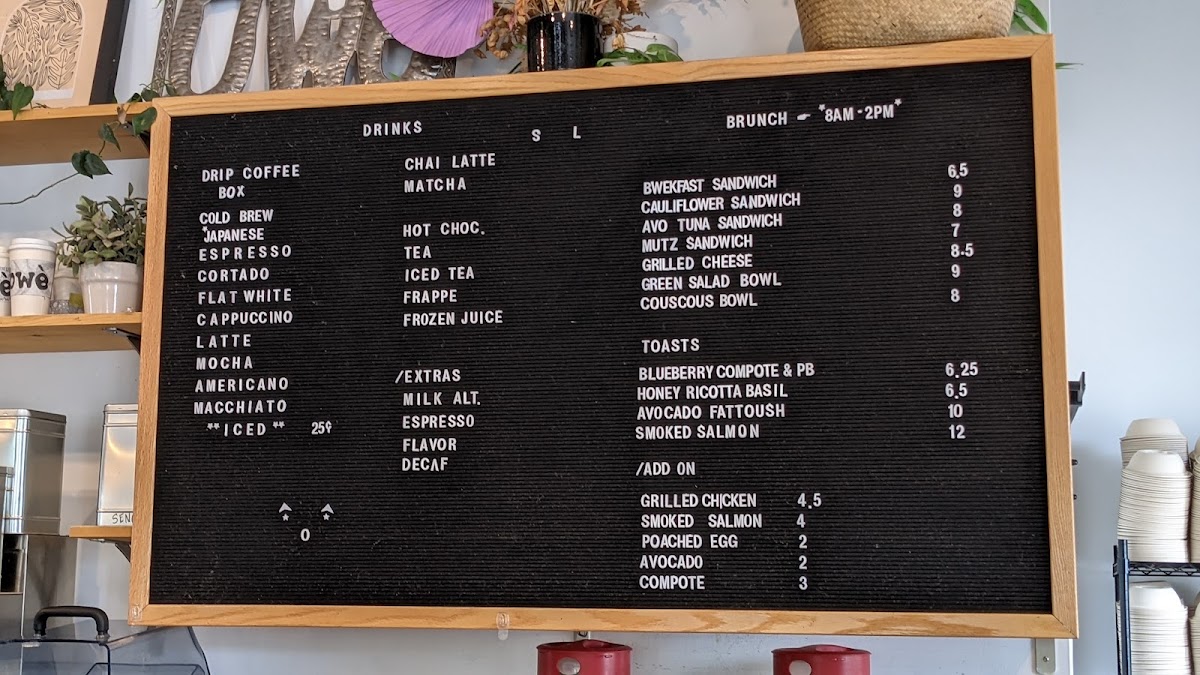 DRINKS
S L
DRIP COFFEE
BOX
COLD BREW
*JAPANESE
ESPRESSO
CORTADO
FLAT WHITE
CAPPUCCINO
LATTE
MOCHA
AMERICANO
MACCHIATO
**ICED** 25¢
CHAI LATTE
MATCHA
HOT CHOC.
TEA
ICED TEA
FRAPPE
FROZEN JUICE
/EXTRAS
MILK ALT.
ESPRESSO
FLAVOR
DECAF
BRUNCH ☛ *8AM-2PM*
BWEKFAST SANDWICH 6.5
CAULIFLOWER SANDWICH 9
AVO TUNA SANDWICH 8
MUTZ SANDWICH 7
GRILLED CHEESE 8.5
GREEN SALAD BOWL 9
COUSCOUS BOWL 8
TOASTS
BLUEBERRY COMPOTE & PB 6.25
HONEY RICOTTA BASIL 6.5
AVOCADO FATTOUSH 10
SMOKED SALMON 12
/ADD ON
GRILLED CHICKEN 4.5
SMOKED SALMON 4
POACHED EGG 2
AVOCADO 2
COMPOTE 3